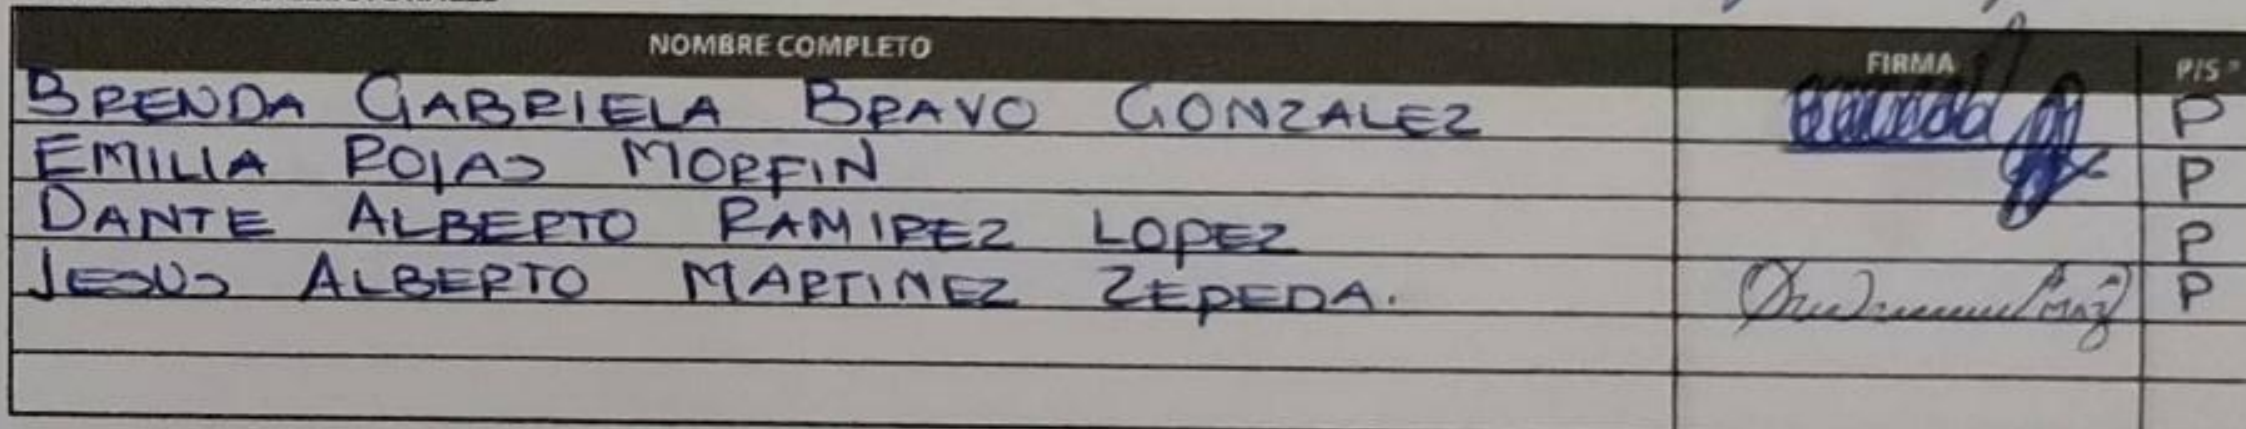 NOMBRE COMPLETO FIRMA P/S *
BRENDA GABRIELA BRAVO GONZALEZ P
EMILIA ROJAS MORFIN P
DANTE ALBERTO RAMIREZ LOPEZ P
JESUS ALBERTO MARTINEZ ZEPEDA. P